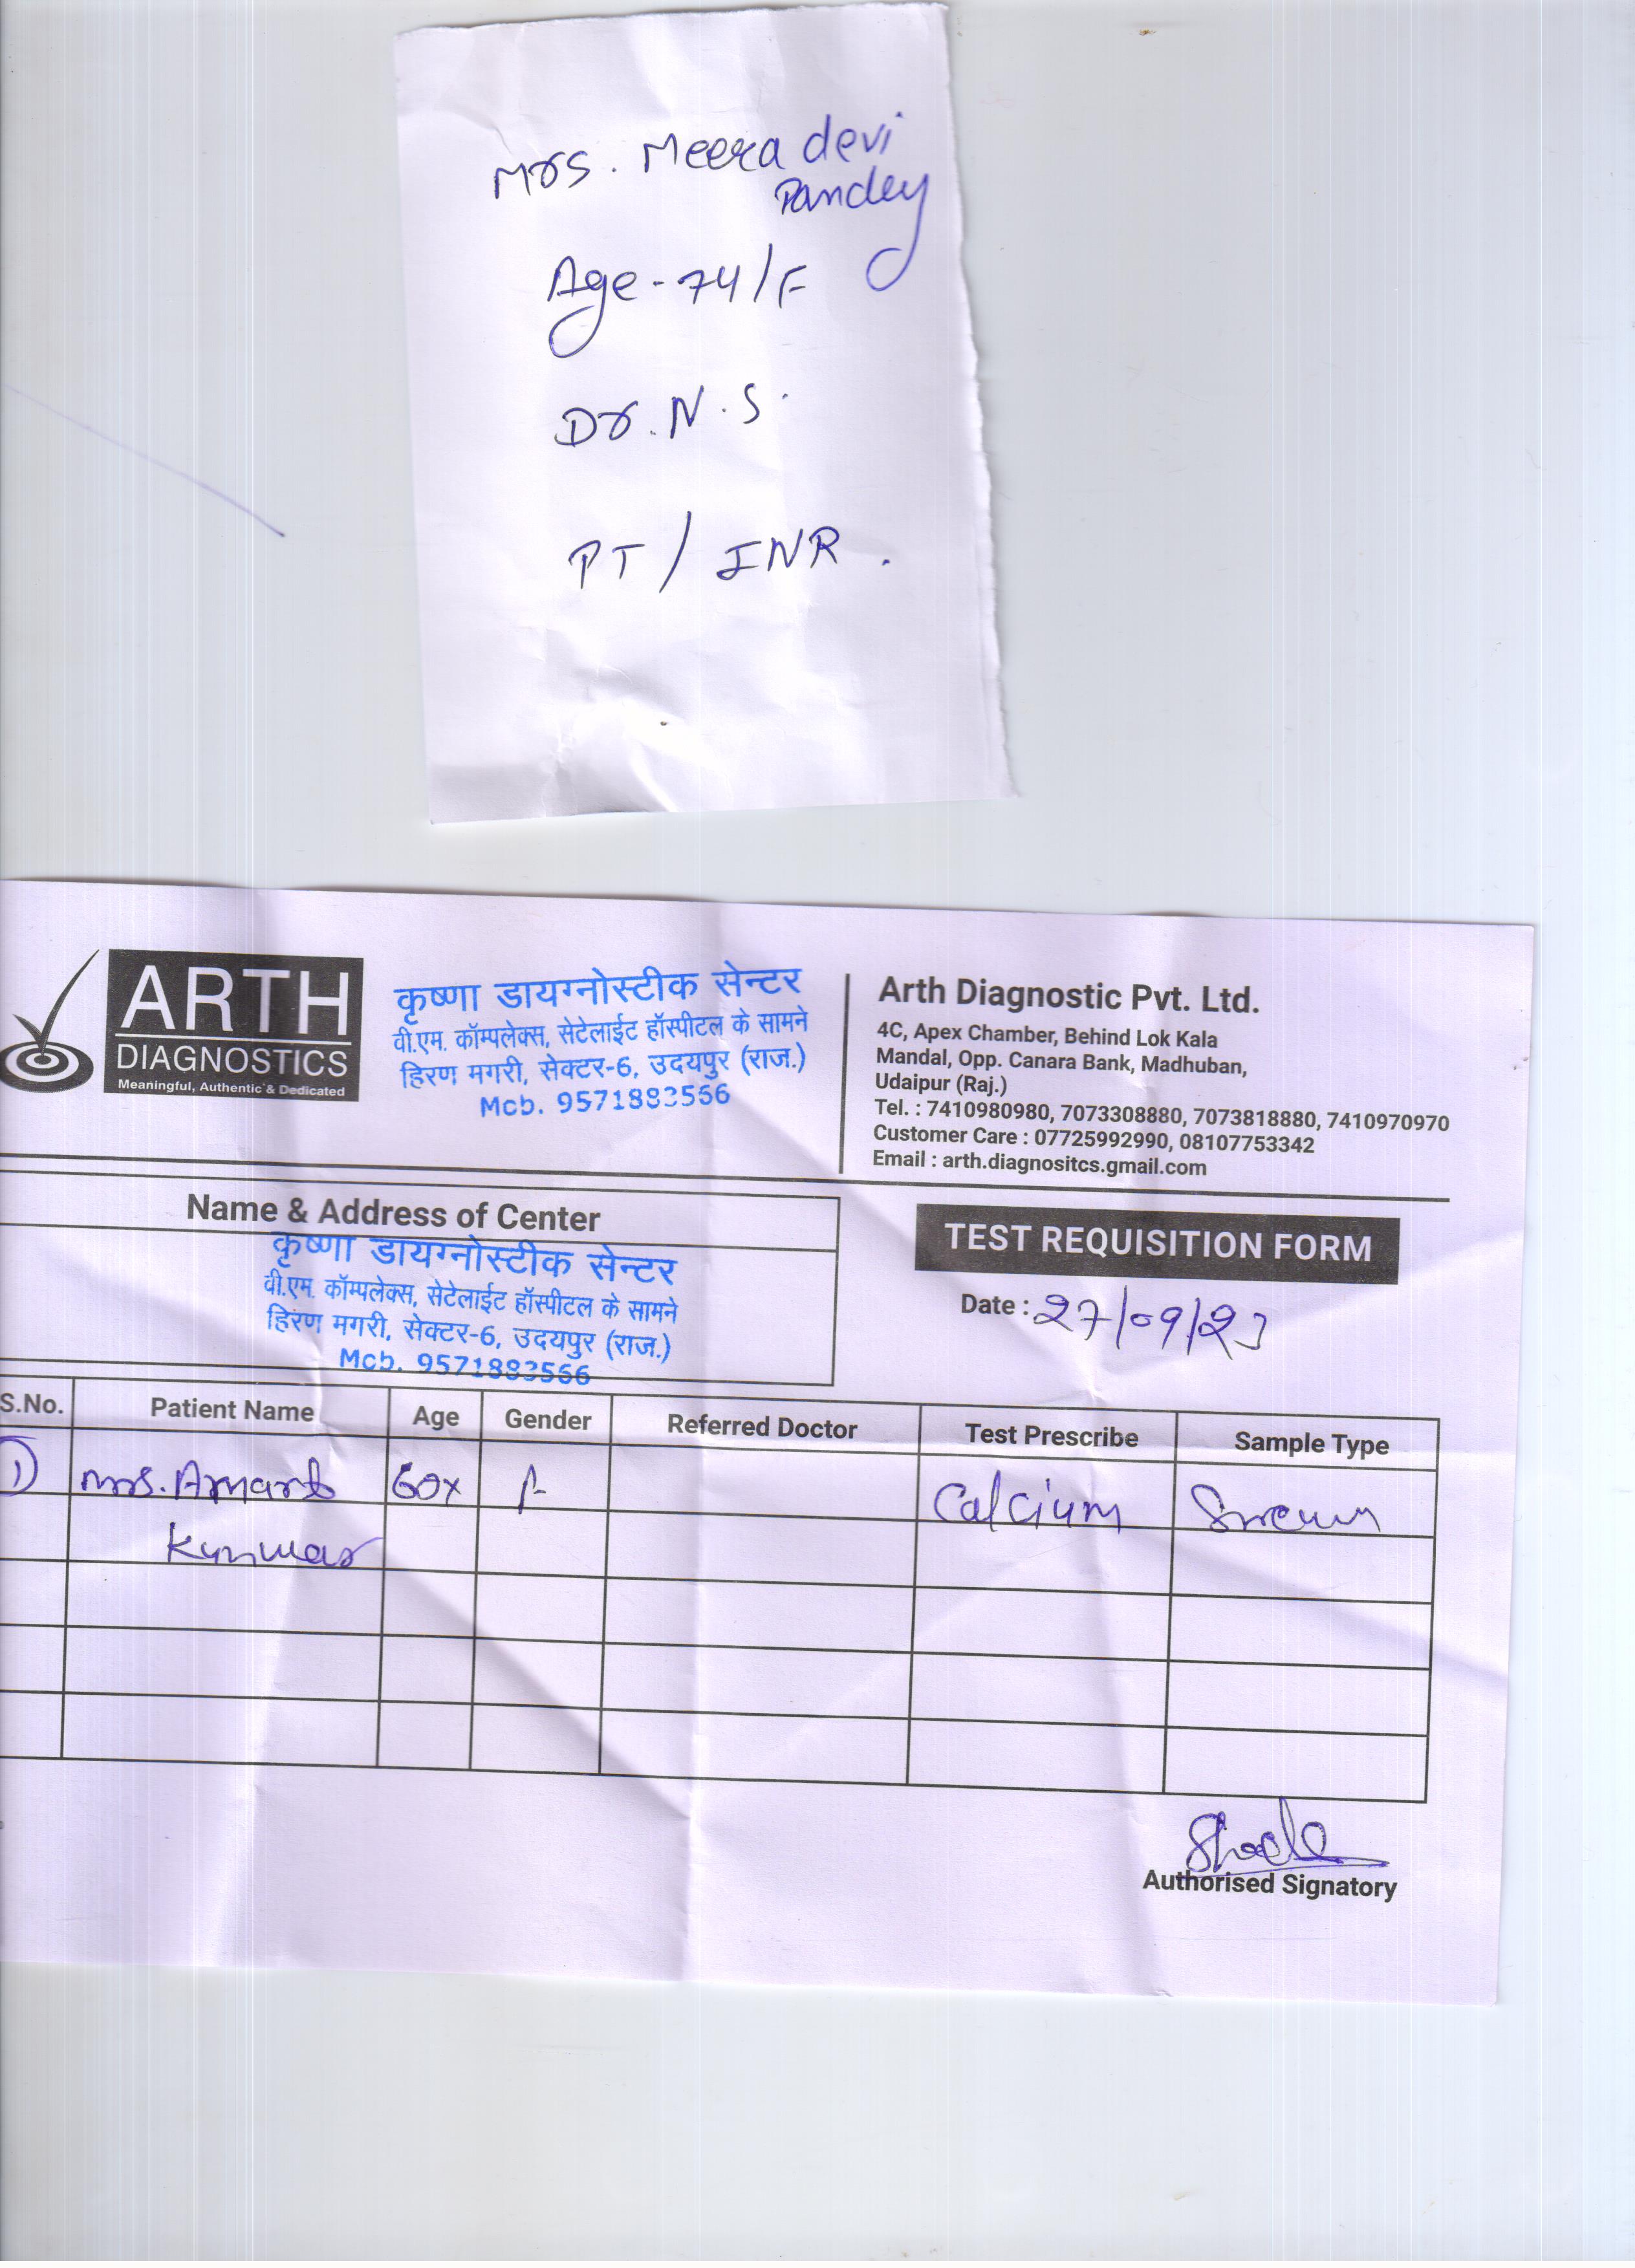 Mrs. Meera devi
Pandey
Age - 74/F
Dr. N. S.
PT / INR.
ARTH
DIAGNOSTICS
Meaningful, Authentic & Dedicated
कृष्णा डायग्नोस्टीक सेन्टर
वी.एम. कॉम्पलेक्स, सेटेलाईट हॉस्पीटल के सामने
हिरण मगरी, सेक्टर-6, उदयपुर (राज.)
Mob. 9571883556
Arth Diagnostic Pvt. Ltd.
4C, Apex Chamber, Behind Lok Kala
Mandal, Opp. Canara Bank, Madhuban,
Udaipur (Raj.)
Tel. : 7410980980, 7073308880, 7073818880, 7410970970
Customer Care : 07725992990, 08107753342
Email : arth.diagnositcs.gmail.com
Name & Address of Center
कृष्णा डायग्नोस्टीक सेन्टर
वी.एम. कॉम्पलेक्स, सेटेलाईट हॉस्पीटल के सामने
हिरण मगरी, सेक्टर-6, उदयपुर (राज.)
Mob. 9571883556
TEST REQUISITION FORM
Date : 27/09/23
S.No. Patient Name Age Gender Referred Doctor Test Prescribe Sample Type
1) Mrs. 60 F Calcium
Kunwar
Authorised Signatory